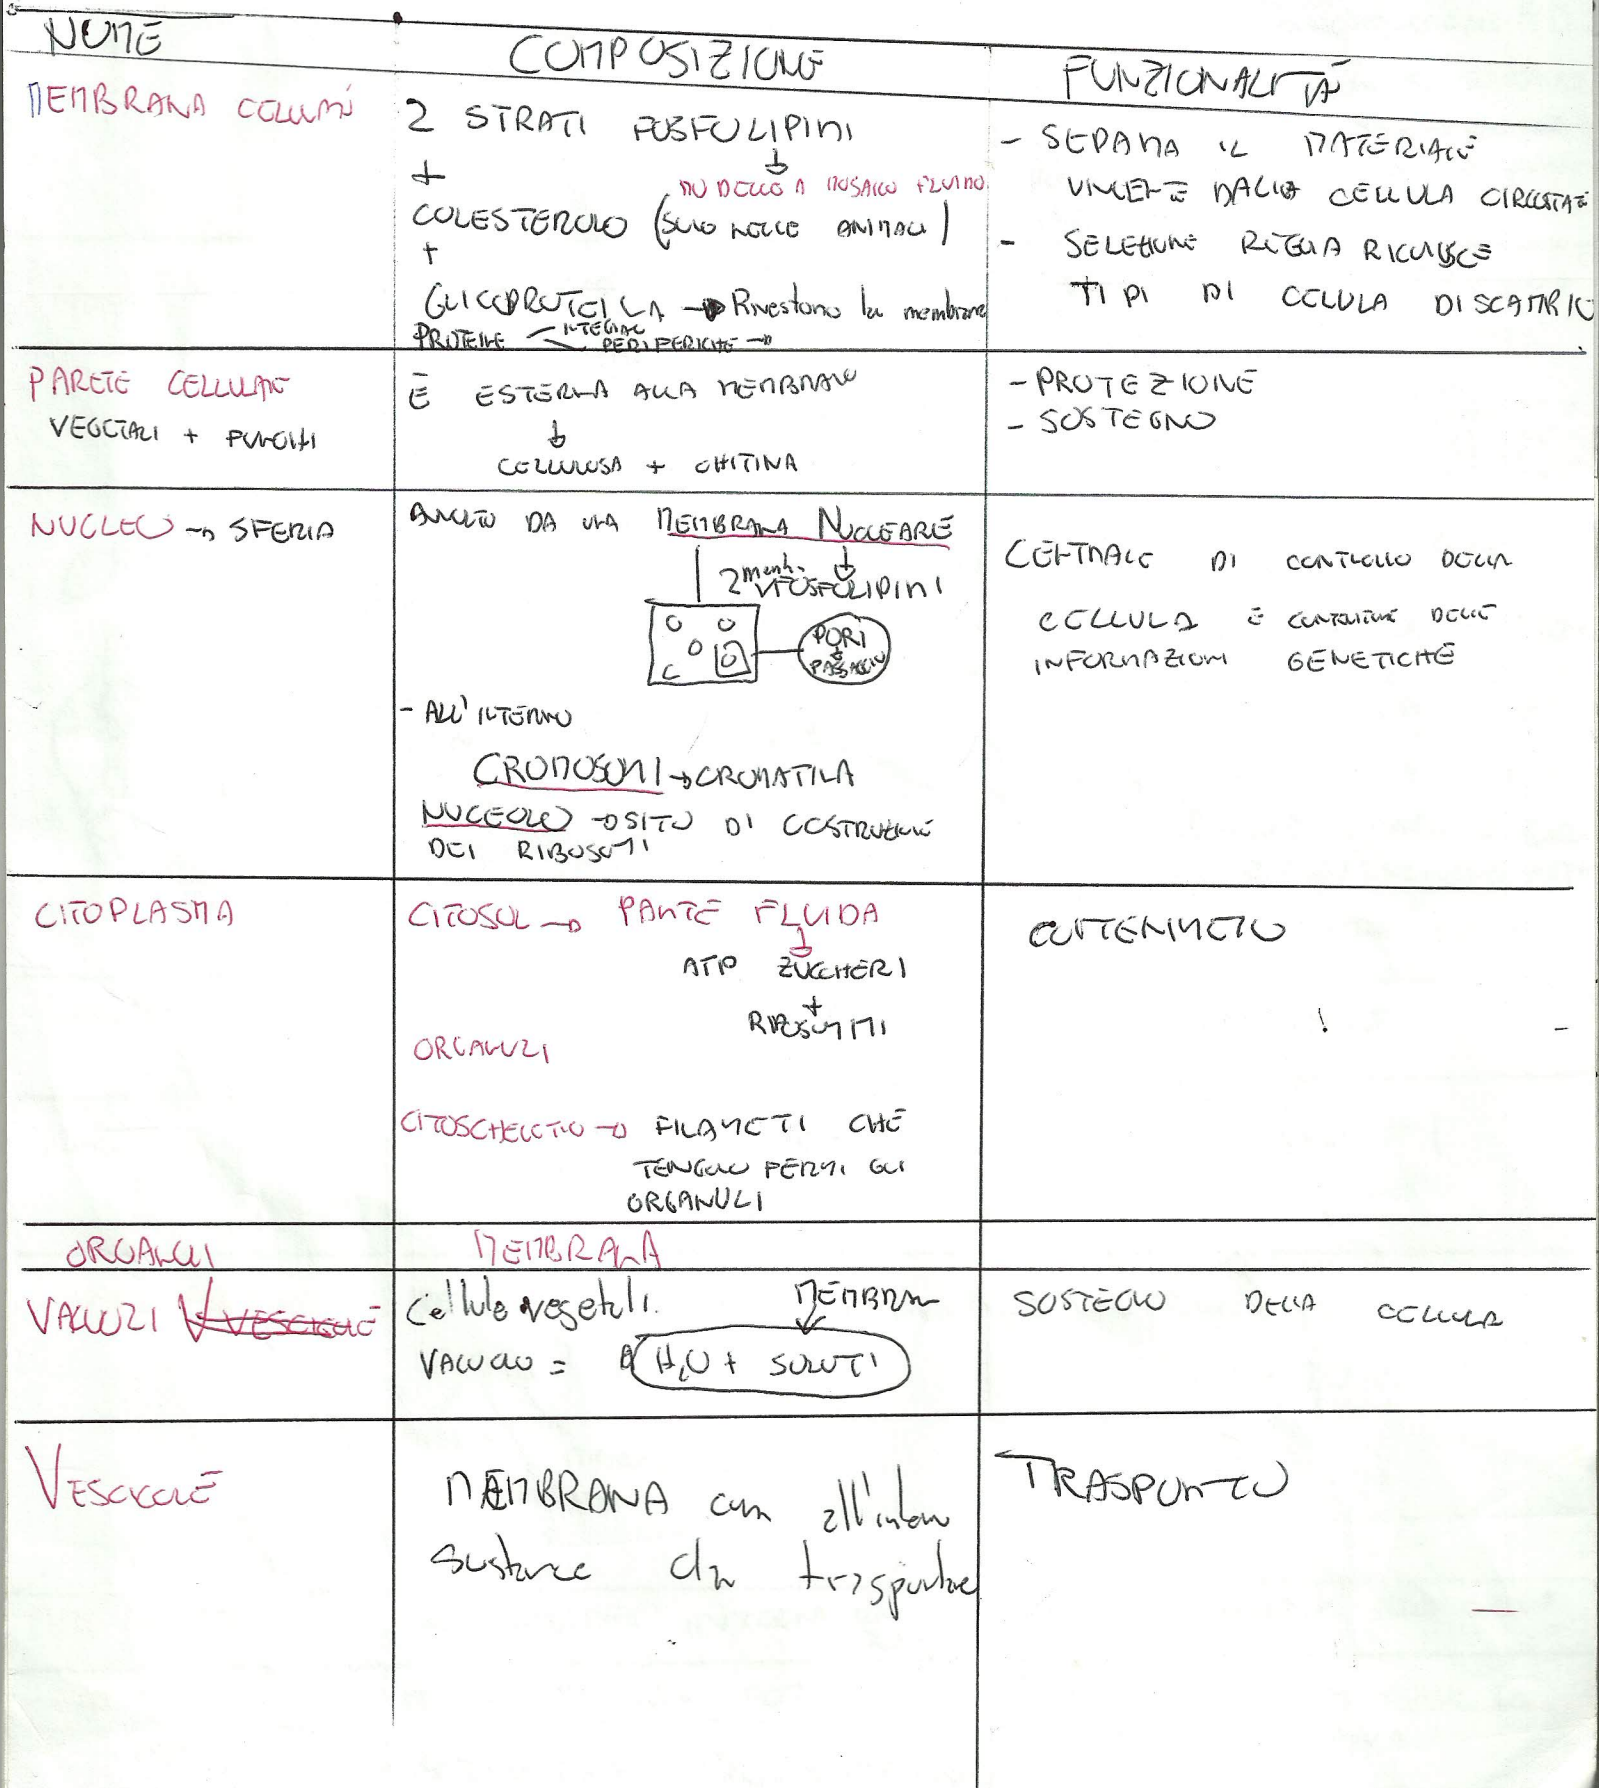 NOME
COMPOSIZIONE
FUNZIONALITÀ
MEMBRANA
2 STRATI FOSFOLIPIDI
+
MODELLO A MOSAICO FLUIDO
COLESTEROLO (SOLO NELLE ANIMALI)
+
GLICOPROTEINA → Rivestono la membrana
PROTEINE INTEGRALI
PERIFERICHE →
- SEPARA IL MATERIALE
VIVENTE DALLA CELLULA
- SELEZIONE REGOLA RICONOSCE
TIPI DI CELLULA DI
PARETE CELLULARE
VEGETALI + FUNGHI
È ESTERNA ALLA MEMBRANA
CELLULOSA + CHITINA
- PROTEZIONE
- SOSTEGNO
NUCLEO → SFERIA
DA UNA MEMBRANA NUCLEARE
2 memb. FOSFOLIPIDI
PORI
PASSAGGIO
- ALL'INTERNO
CROMOSOMI → CROMATINA
NUCEOLO → SITO DI COSTRUZIONE
DEI RIBOSOMI
CENTRALE DI CONTROLLO DELLA
CELLULA E CONTENITORE DELLE
INFORMAZIONI GENETICHE
CITOPLASMA
CITOSOL → PARTE FLUIDA
ATP ZUCCHERI
+
RIBOSOMI
ORGANULI
CITOSCHELETRO → FILAMETI CHE
TENGONO FERMI GLI
ORGANULI
ORGANULI
MEMBRANA
VACUOLI
Cellule vegetali.
MEMBRANA
VACUOLO = H2O + SOLUTI
SOSTEGNO DELLA CELLULA
VESCICOLE
MEMBRANA con all'interno
sostanze da trasportare
TRASPORTO